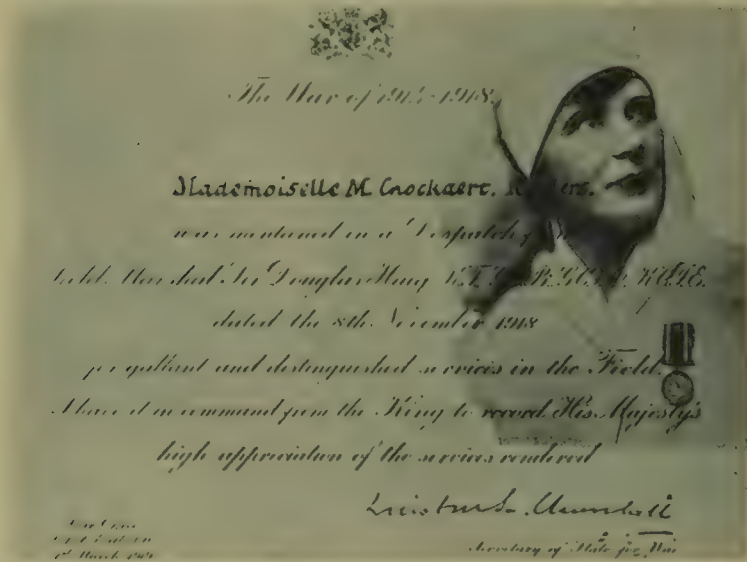 The War of 1914-1918.
Mademoiselle M. Cnockaert,
was mentioned in a Despatch
Sir Douglas Haig K.T. G.C.B. G.C.V.O. K.C.I.E.
dated the 8th November 1918
for gallant and distinguished services in the Field.
I have it in command from the King to record His Majesty's
high appreciation of the services rendered
Winston S. Churchill
Secretary of State for War
1st March 1919